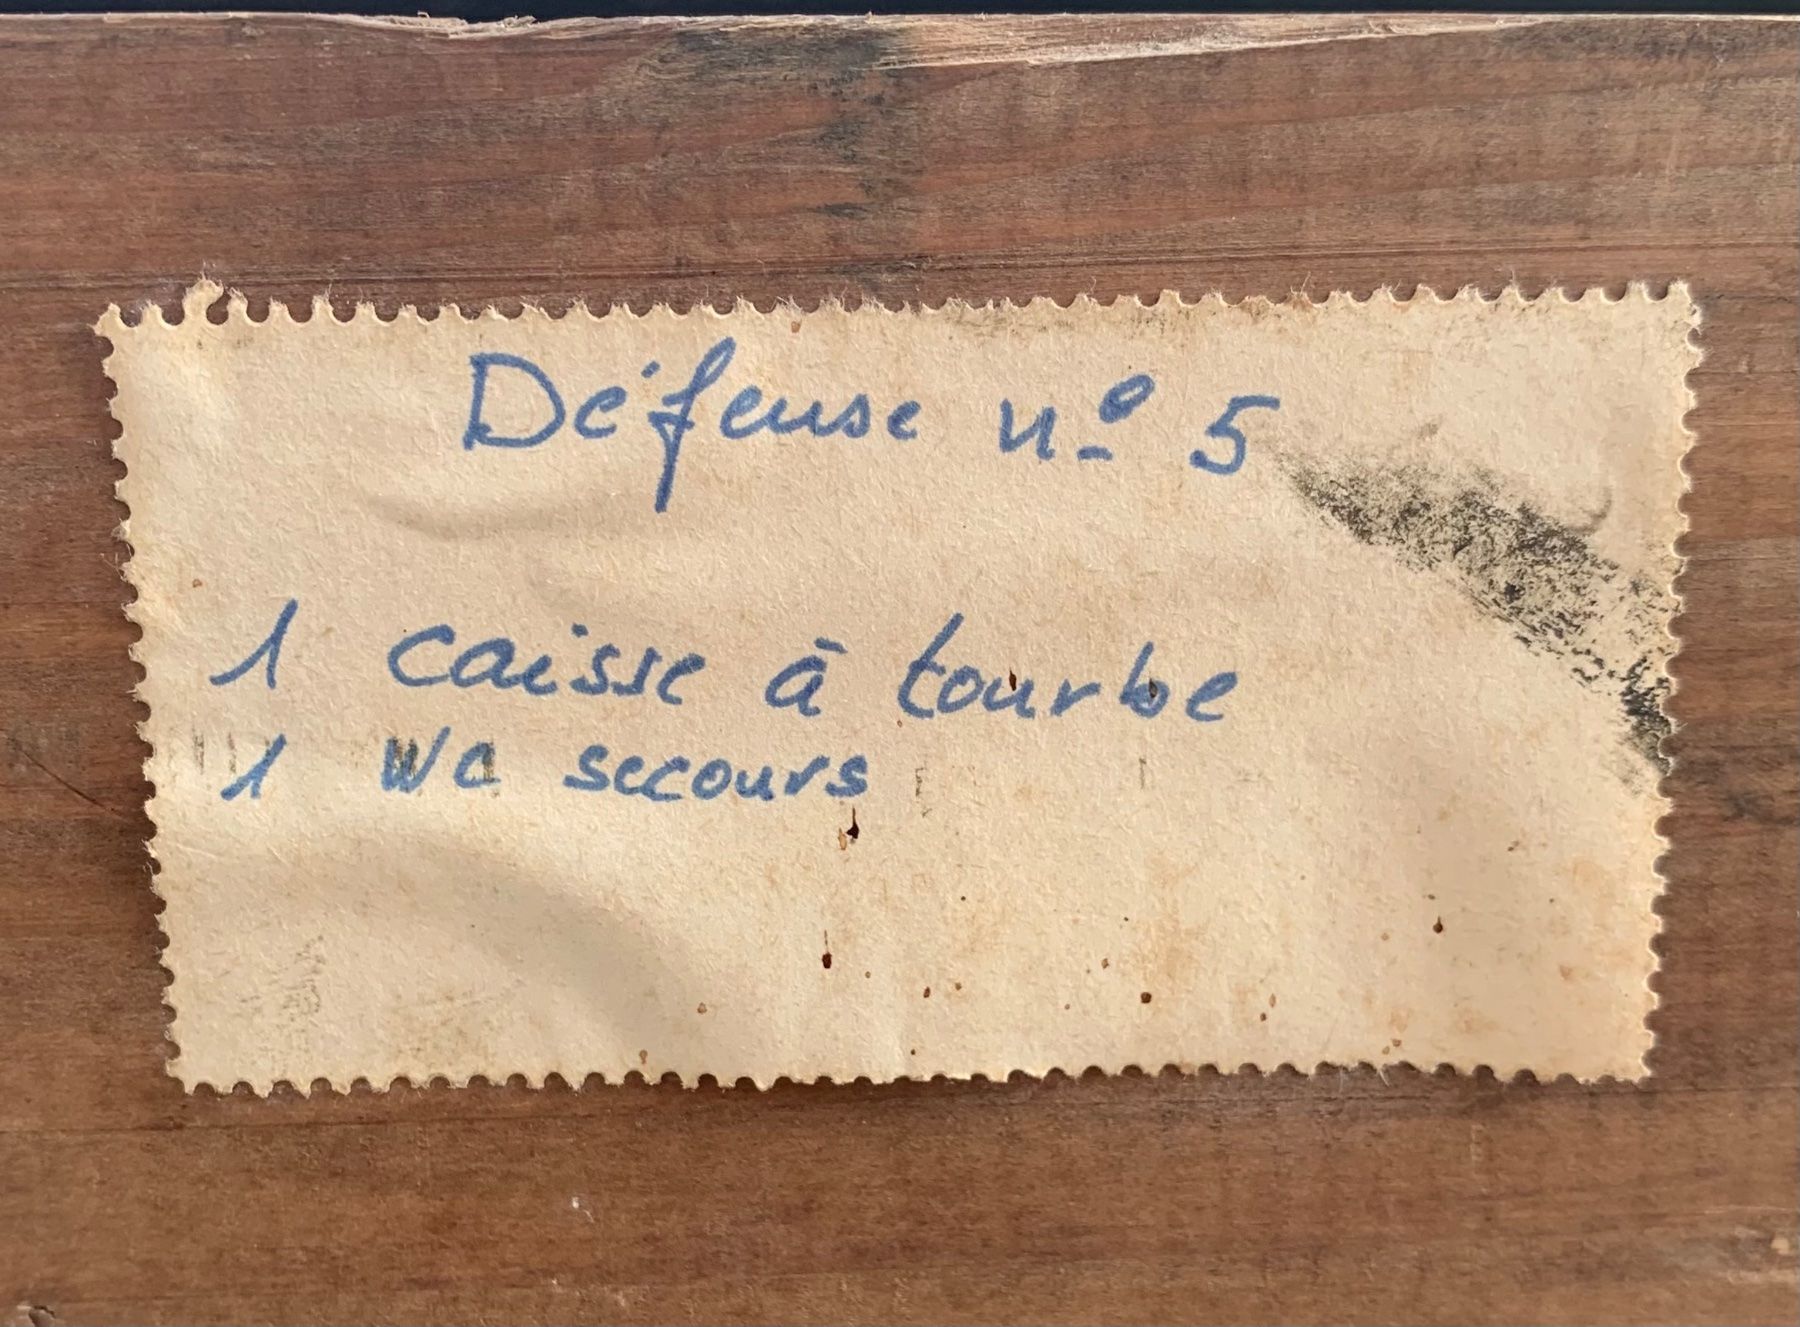 Défense nº 5
1 caisse à tourbe
1 WC secours